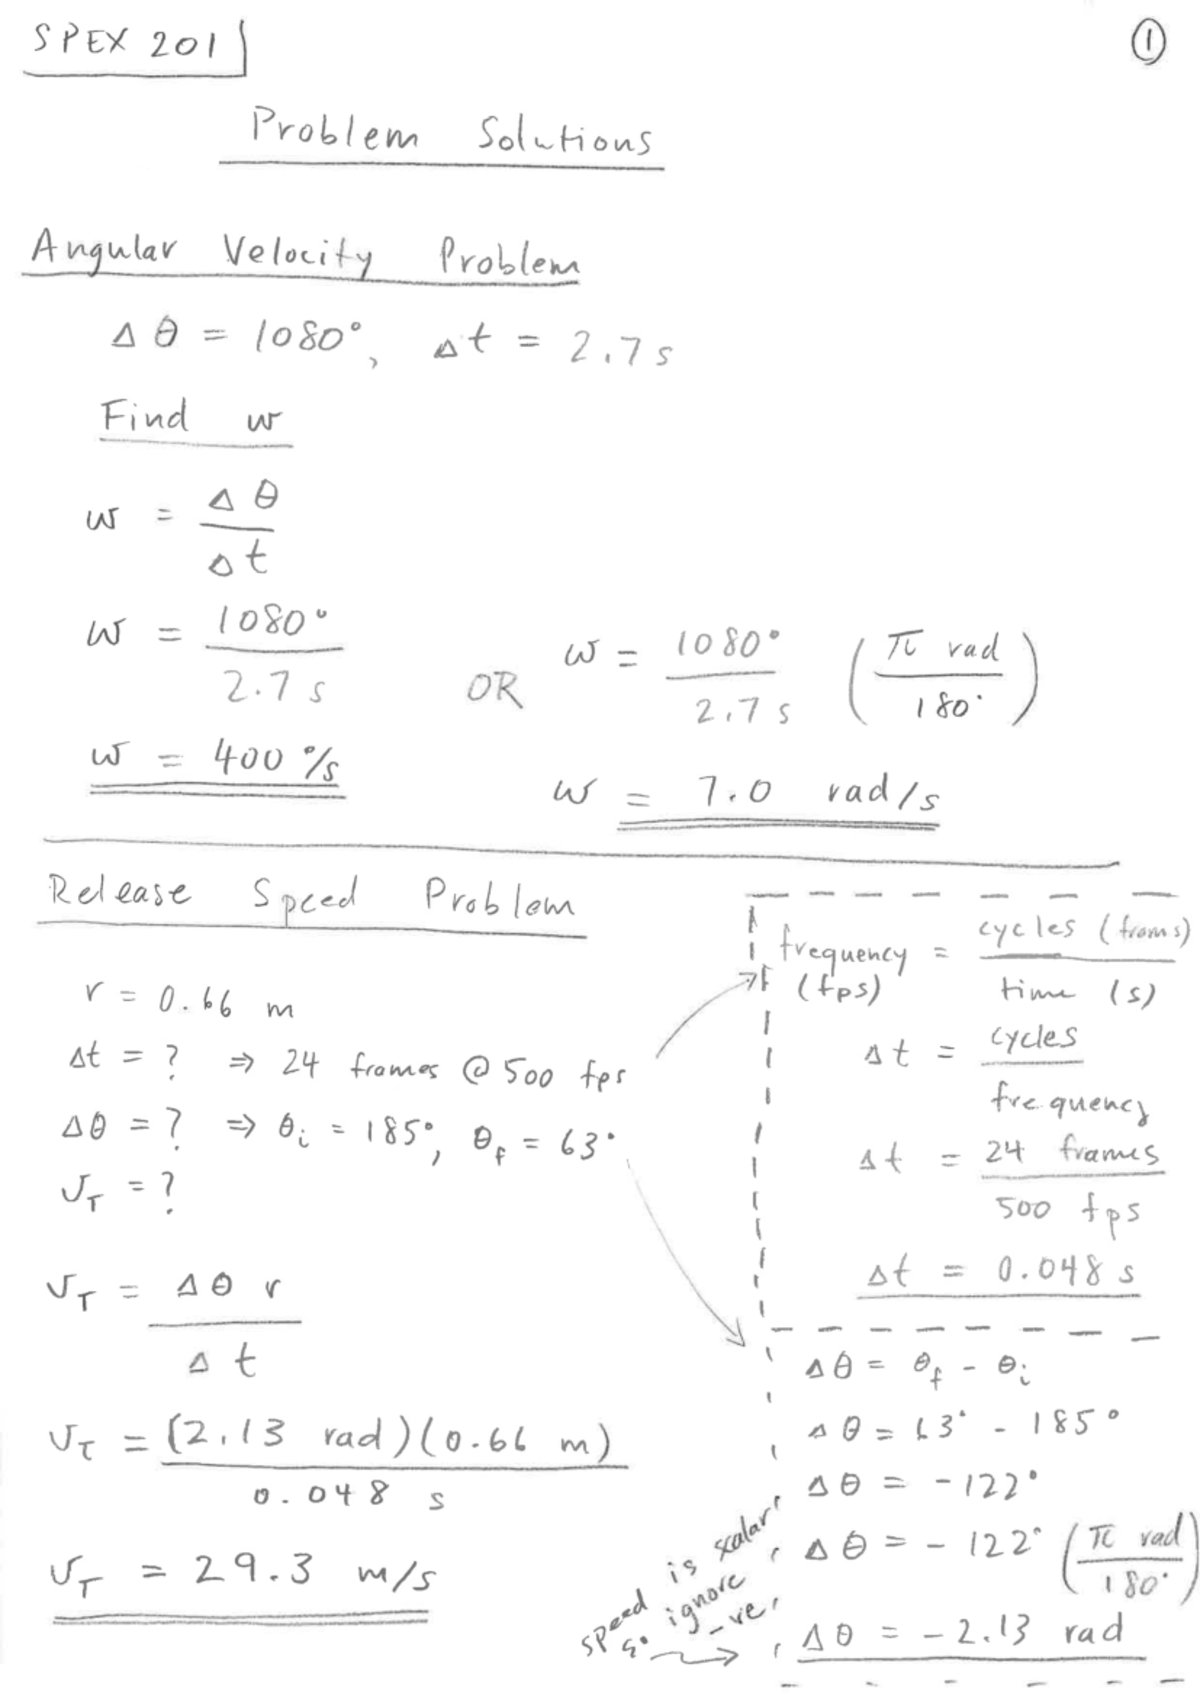 SPEX 201
1
Problem Solutions
Angular Velocity Problem
Δθ = 1080°, Δt = 2.7 s
Find w
w = Δθ / Δt
w = 1080° / 2.7 s
OR
w = 1080° / 2.7 s (π rad / 180°)
w = 400 °/s
w = 7.0 rad/s
Release Speed Problem
r = 0.66 m
Δt = ? ⇒ 24 frames @ 500 fps
Δθ = ? ⇒ θi = 185°, θf = 63°
VT = ?
VT = Δθ r / Δt
VT = (2.13 rad)(0.66 m) / 0.048 s
VT = 29.3 m/s
frequency (fps) = cycles (frams) / time (s)
Δt = cycles / frequency
Δt = 24 frames / 500 fps
Δt = 0.048 s
Δθ = θf - θi
Δθ = 63° - 185°
Δθ = -122°
Δθ = -122° (π rad / 180°)
Δθ = -2.13 rad
speed is scalar
so ignore
-ve